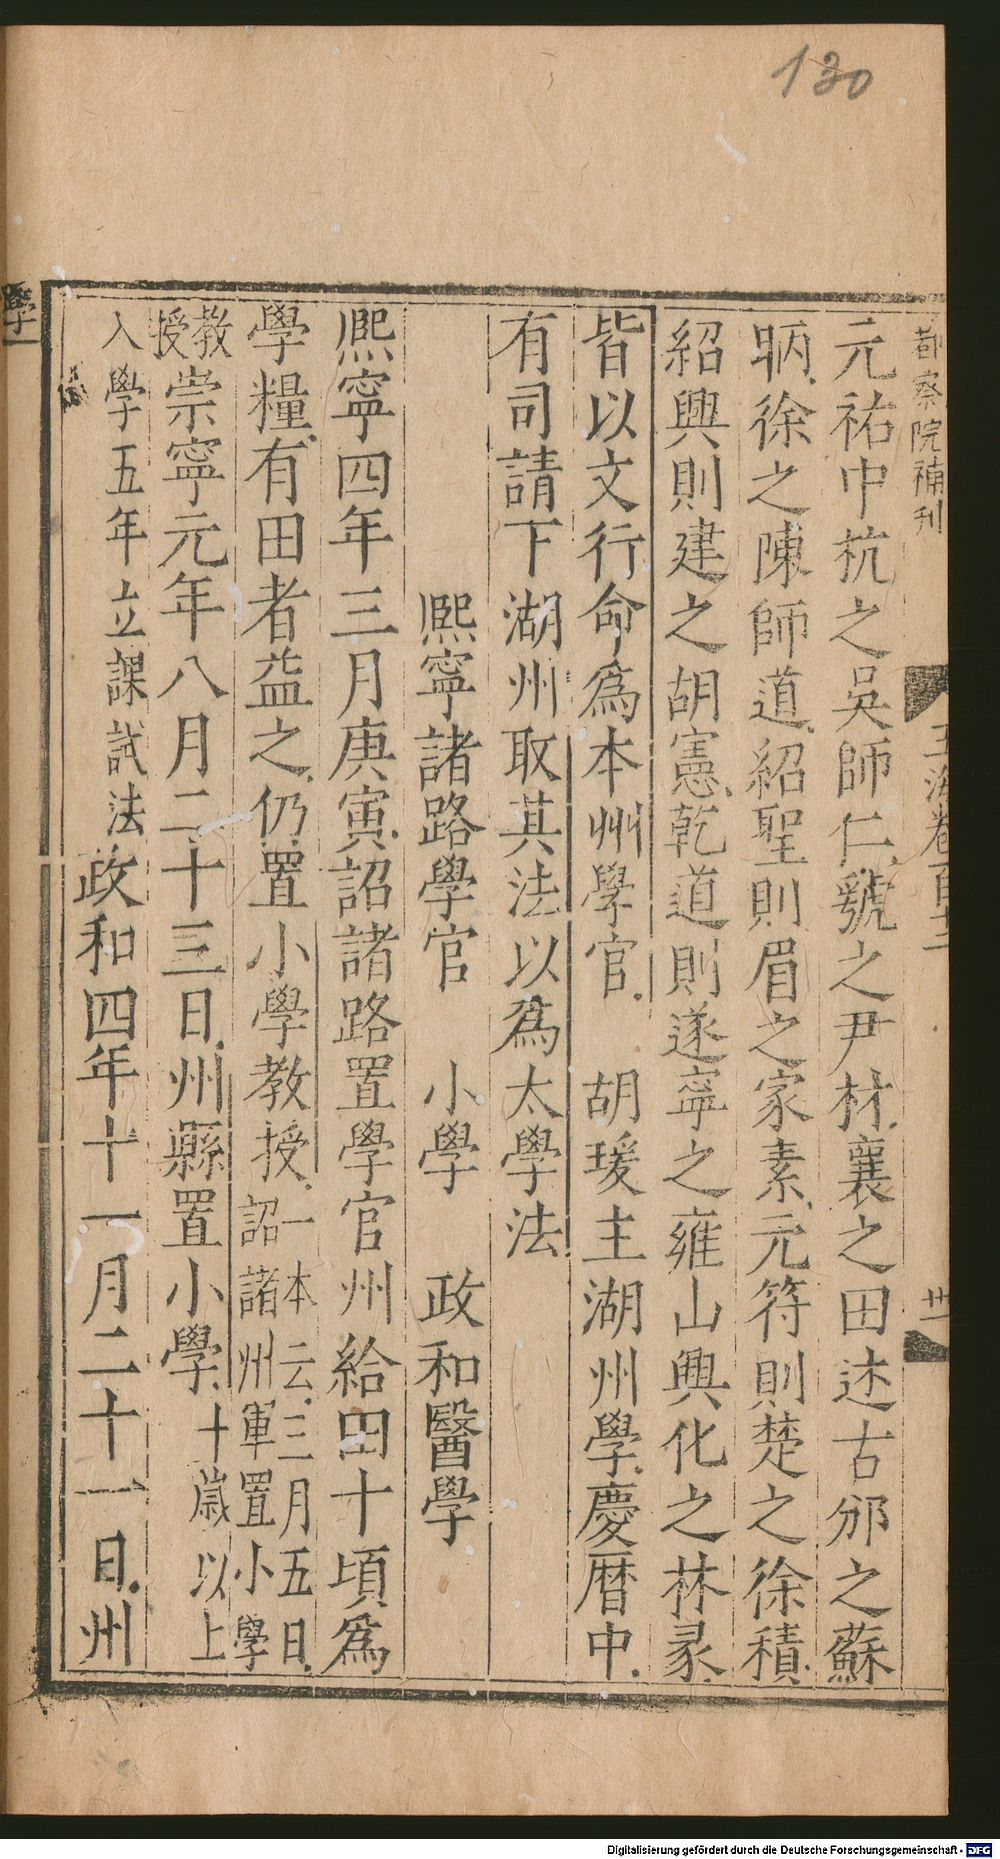 130
都察院補刊
玉海卷百十二
卅一
元祐中杭之吳師仁虢之尹材襄之田述古邠之蘇
昞徐之陳師道紹聖則眉之家素元符則楚之徐積
紹興則建之胡憲乾道則遂寧之雍山興化之林彖
皆以文行命爲本州學官 胡瑗主湖州學慶曆中
有司請下湖州取其法以爲太學法
熈寧諸路學官 小學 政和醫學
熈寧四年三月庚寅詔諸路置學官州給田十頃爲
學糧有田者益之仍置小學教授一本云三月五日詔諸州軍置小學
教授崇寧元年八月二十三日州縣置小學十歲以上
入學五年立課試法政和四年十一月二十一日州
學
Digitalisierung gefördert durch die Deutsche Forschungsgemeinschaft - DFG